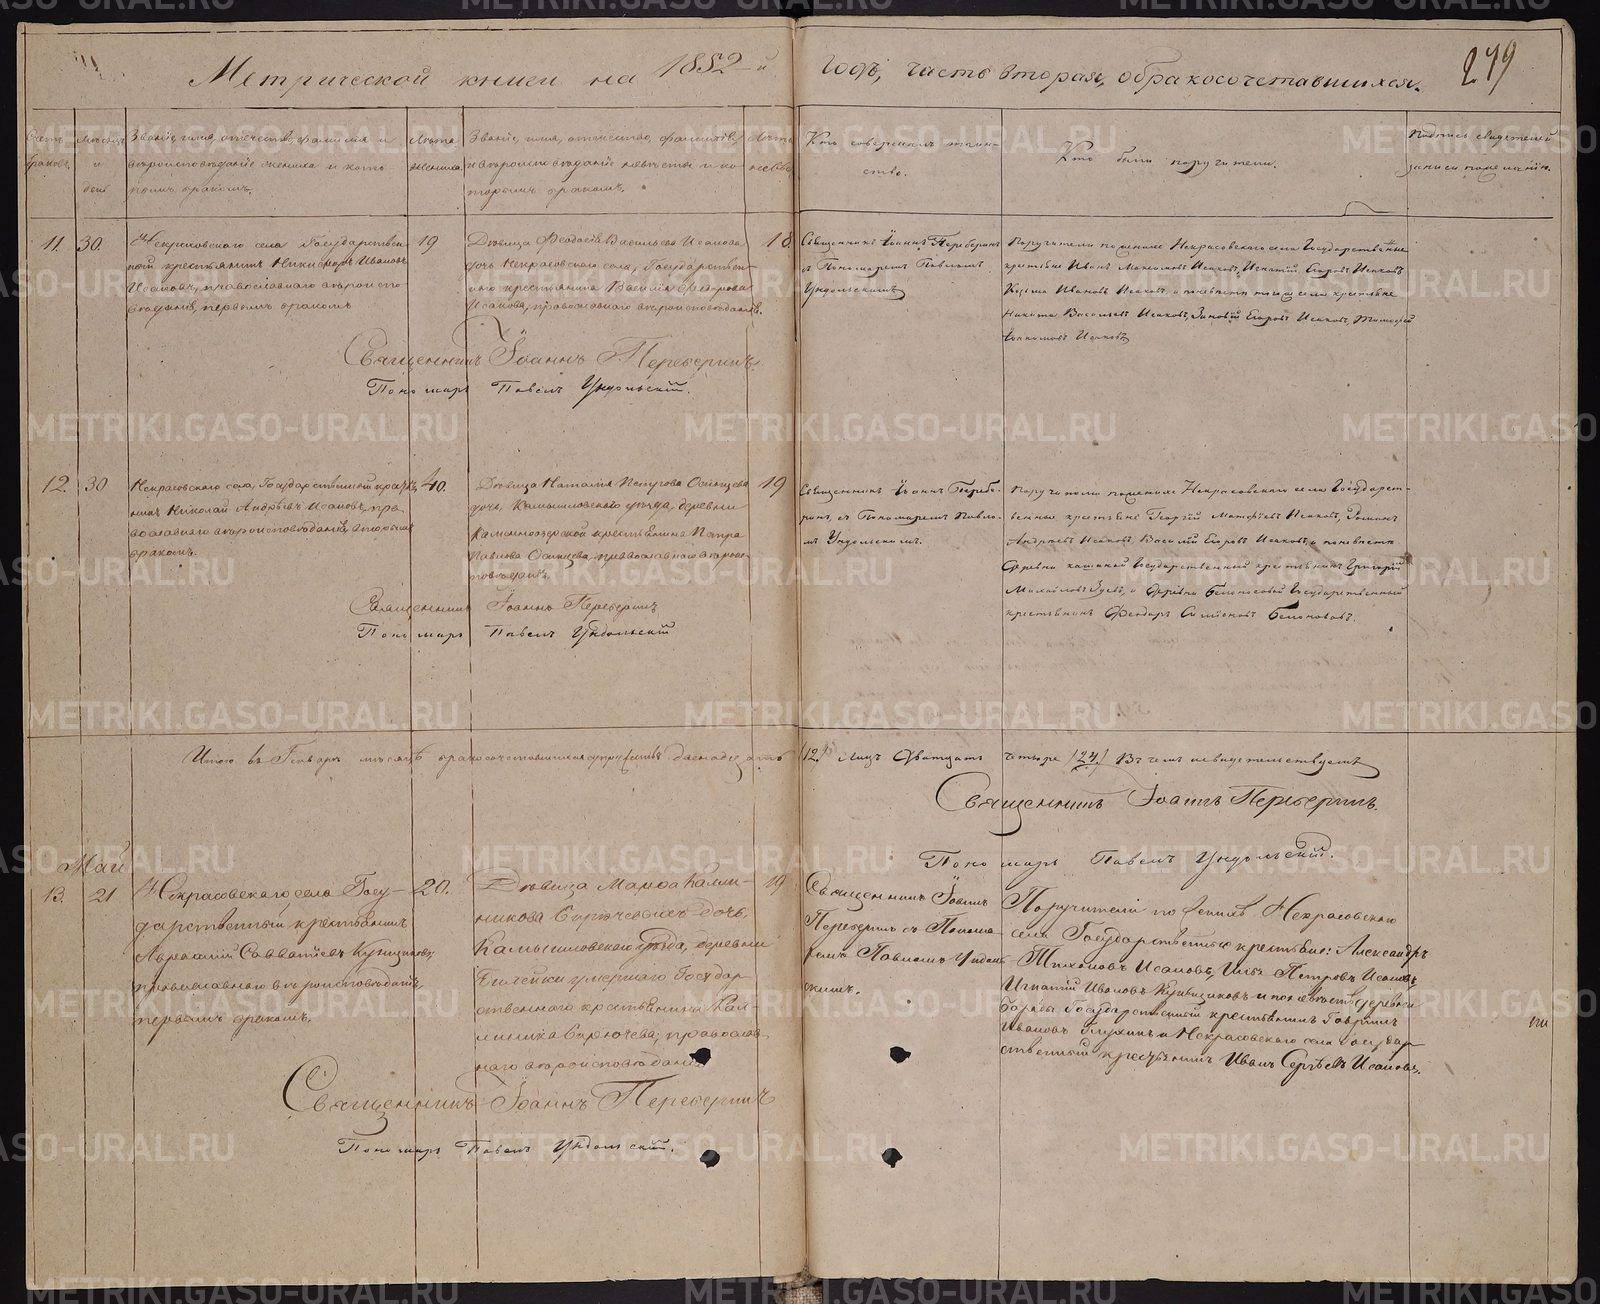 Метрической книги на 1852-й годъ, часть вторая, о бракосочетавшихся.
279
Счетъ браковъ.
Мѣсяцъ и день
Званіе, имя, отечество, фамилія и
вѣроисповѣданіе жениха и кото-
рымъ бракомъ.
Лѣта жениха.
Званіе, имя, отечество, фамилія,
и вѣроисповѣданіе невѣсты и ко-
торымъ бракомъ.
Лѣта невѣсты
Кто совершалъ таин-
ство.
Кто были поручители.
Подпись свидѣтелей
записи по желанію.
11.
30.
Некрасовскаго села Государствен-
ный крестьянинъ Никифоръ Ивановъ
Исаковъ, православнаго вѣроиспо-
вѣданія, первымъ бракомъ
19
Дѣвица Феодосія Васильева Исакова
дочь Некрасовскаго села, Государствен-
наго крестьянина Василія Федорова
Исакова, православнаго вѣроисповѣданія.
18.
Священникъ Іоаннъ Переберинъ
съ Пономаремъ Павломъ
Ундольскимъ
Поручители по женихе Некрасовскаго села Государственные
крестьяне Иванъ Максимовъ Исаковъ, Игнатій Егоровъ Исаковъ
Козьма Ивановъ Исаковъ, а по невѣсте тогожъ села крестьяне
Никита Васильевъ Исаковъ, Зиновій Егоровъ Исаковъ, Тимофей
Исаковъ
Священникъ Іоаннъ Переберинъ.
Пономарь Павелъ Ундольскій.
12.
30
Некрасовскаго села, Государственный крестья-
нинъ Николай Андрѣевъ Исаковъ, пра-
вославнаго вѣроисповѣданія, вторымъ
бракомъ.
40.
Дѣвица Наталія Петрова Осинцева
дочь, Камышловскаго уѣзда, деревни
Каменноозерской крестьянина Петра
Павлова Осинцева, православнаго вѣроис-
повѣданія.
19
Священникъ Іоаннъ Перебе-
ринъ, съ Пономаремъ Павло-
мъ Ундольскимъ.
Поручители по женихе Некрасовскаго села Государст-
венные крестьяне Георгій Матфѣевъ Исаковъ, Романъ
Андрѣевъ Исаковъ, Василій Егоровъ Исаковъ, а по невѣсте
деревни Государственный крестьянинъ Григорій
Михайловъ Зуевъ, и деревни Белоносовой Государственный
крестьянинъ Феодоръ Симоновъ Белоносовъ.
Священникъ Іоаннъ Переберинъ
Пономарь Павелъ Ундольскій
Итого въ Генварѣ мѣсяцѣ бракосочетавшихся супружествъ двенадцать /12./ лицъ двадцать четыре /24./ Въ чемъ и свидѣтельствуемъ
Священникъ Іоаннъ Переберинъ.
Пономарь Павелъ Ундольскій.
Май
13.
21
Некрасовскаго села Госу-
дарственный крестьянинъ
Авраамій Савватіевъ Кунщиковъ,
православнаго вѣроисповѣданія,
первымъ бракомъ.
20.
Дѣвица Марфа Калин-
никова Бирючевыхъ дочь,
Камышловскаго уѣзда, деревни
Билейки умершаго Государ-
ственнаго крестьянина Кал-
линика Бирючева, православ-
наго вѣроисповѣданія
19
Священникъ Іоаннъ
Переберинъ съ Понома-
ремъ Павломъ Ундоль-
скимъ.
Поручители по женихѣ Некрасовскаго
села Государственные крестьяне: Александръ
Тихоновъ Исаковъ, Илья Петровъ Исаковъ
Игнатій Ивановъ Кунщиковъ и по невѣсте деревни
Государственный крестьянинъ Гавріилъ
Ивановъ Глухихъ и Некрасовскаго села Государ-
ственный крестьянинъ Иванъ Сергѣевъ Исаковъ.
Священникъ Іоаннъ Переберинъ
Пономарь Павелъ Ундольскій.
METRIKI.GASO-URAL.RU